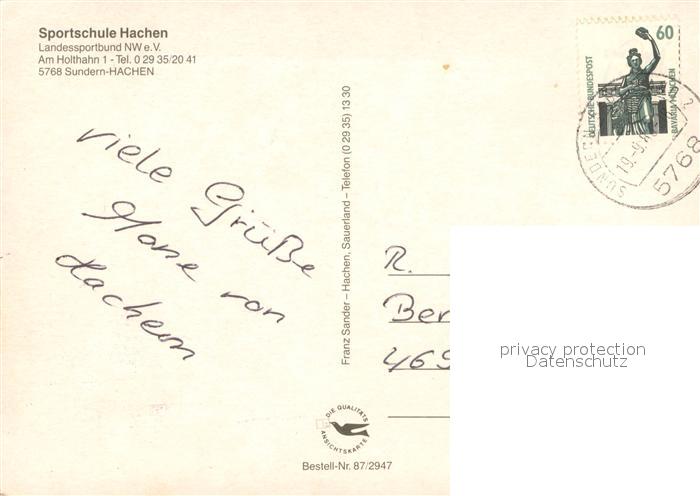 Sportschule Hachen
Landessportbund NW e.V.
Am Holthahn 1 - Tel. 0 29 35/20 41
5768 Sundern-HACHEN
60
DEUTSCHE BUNDESPOST
BAVARIA MÜNCHEN
SUNDERN
5768
viele Grüße
von
Franz Sander – Hachen, Sauerland – Telefon (0 29 35) 13 30
R.
Ber
469
privacy protection
Datenschutz
DIE QUALITÄTS
ANSICHTSKARTE
Bestell-Nr. 87/2947